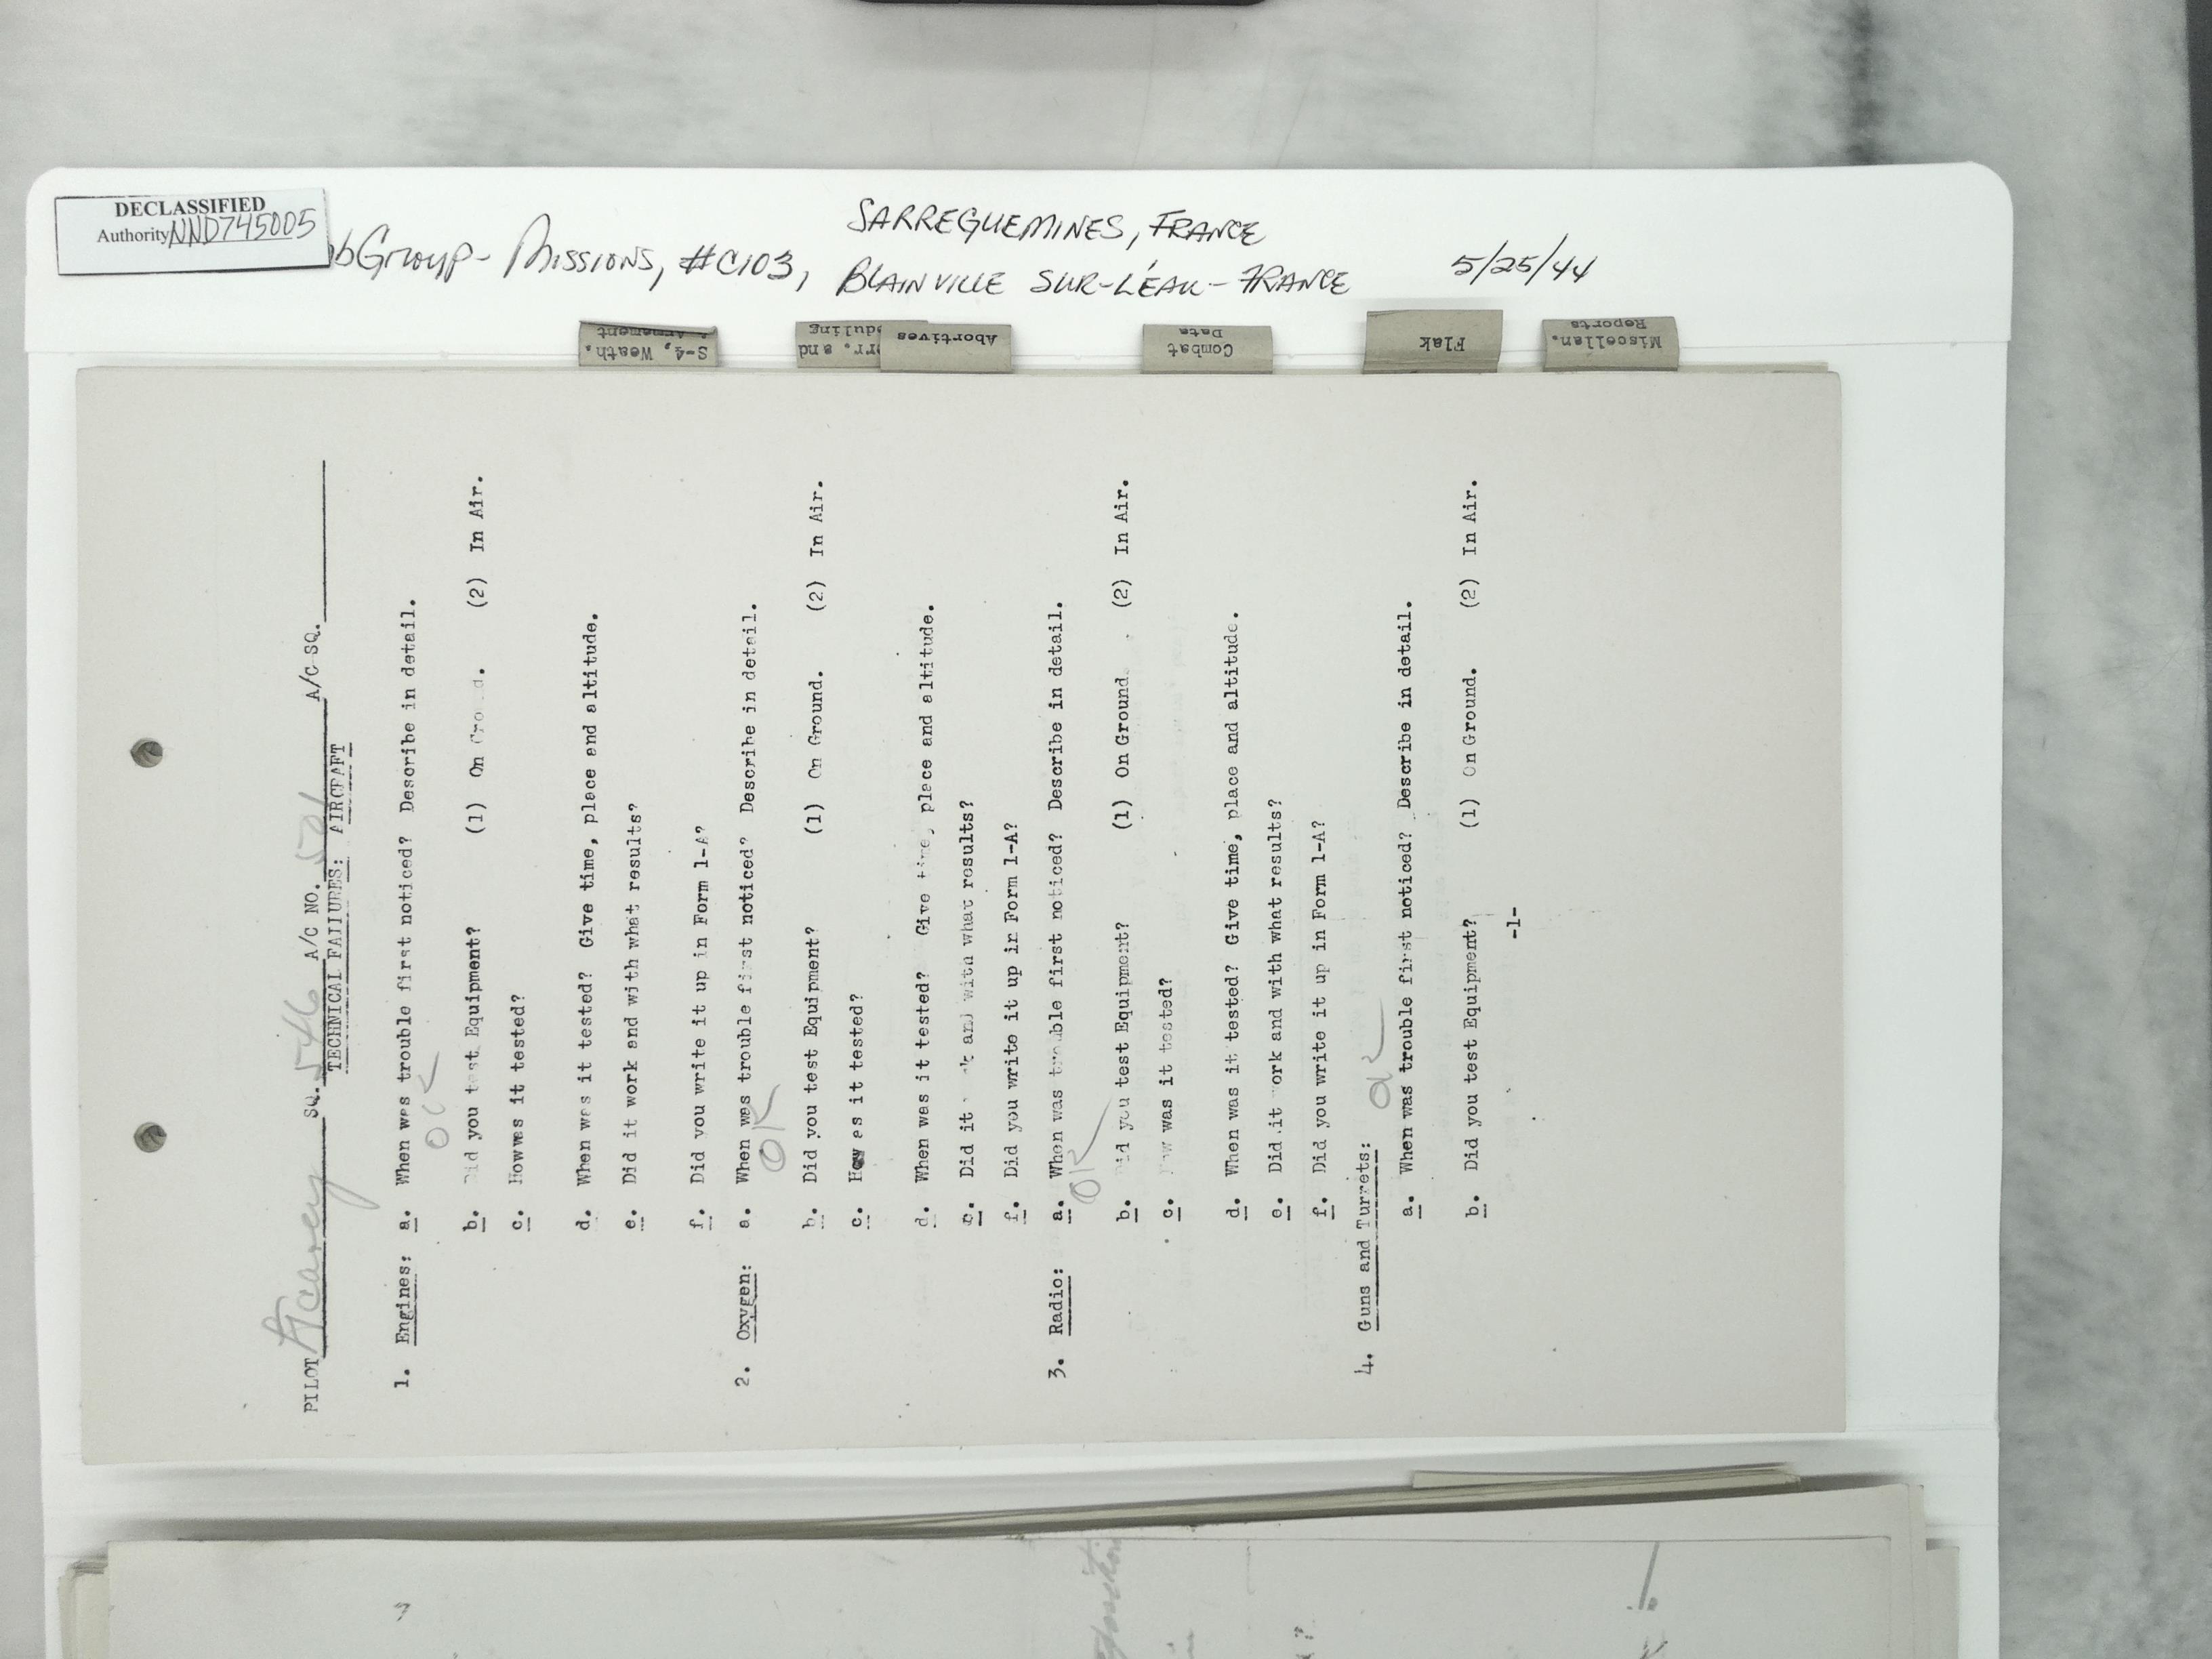 DECLASSIFIED
Authority NND745005
bGroup - Missions, #C103,
SARREGUEMINES, FRANCE
BLAINVILLE SUR-L'EAU - FRANCE
5/25/44
S-4, Weath.
& Armement
rr. and
duling
Abortives
Combat
Data
Flak
Miscellan.
Reports
PILOT SQ. 546 A/C NO. A/C SQ.
TECHNICAL FAILURES: AIRCRAFT
1. Engines: a. When was trouble first noticed? Describe in detail.
OK
b. Did you test Equipment? (1) On Ground. (2) In Air.
c. Howwas it tested?
d. When was it tested? Give time, place and altitude.
e. Did it work and with what results?
f. Did you write it up in Form 1-A?
2. Oxygen: a. When was trouble first noticed? Describe in detail.
OK
b. Did you test Equipment? (1) On Ground. (2) In Air.
c. How as it tested?
d. When was it tested? Give time, place and altitude.
e. Did it and with what results?
f. Did you write it up in Form 1-A?
3. Radio: a. When was trouble first noticed? Describe in detail.
OK
b. Did you test Equipment? (1) On Ground. (2) In Air.
c. How was it tested?
d. When was it tested? Give time, place and altitude.
e. Did it work and with what results?
f. Did you write it up in Form 1-A?
4. Guns and Turrets: OK
a. When was trouble first noticed? Describe in detail.
b. Did you test Equipment? (1) On Ground. (2) In Air.
-1-